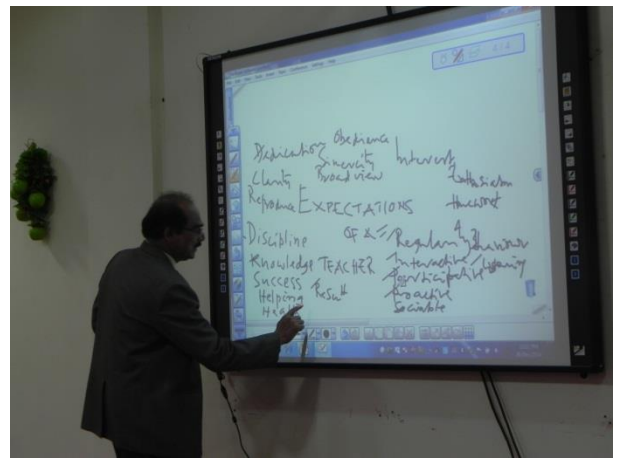 Dedication Obediance
Sincerity Interest
Clarity Broad view Enthusiasm
Reproduce EXPECTATIONS Homework
Discipline OF A Regularity Behaviour
Knowledge TEACHER Interactive Listening
Success Result Participative
Helping Proactive
Sociable